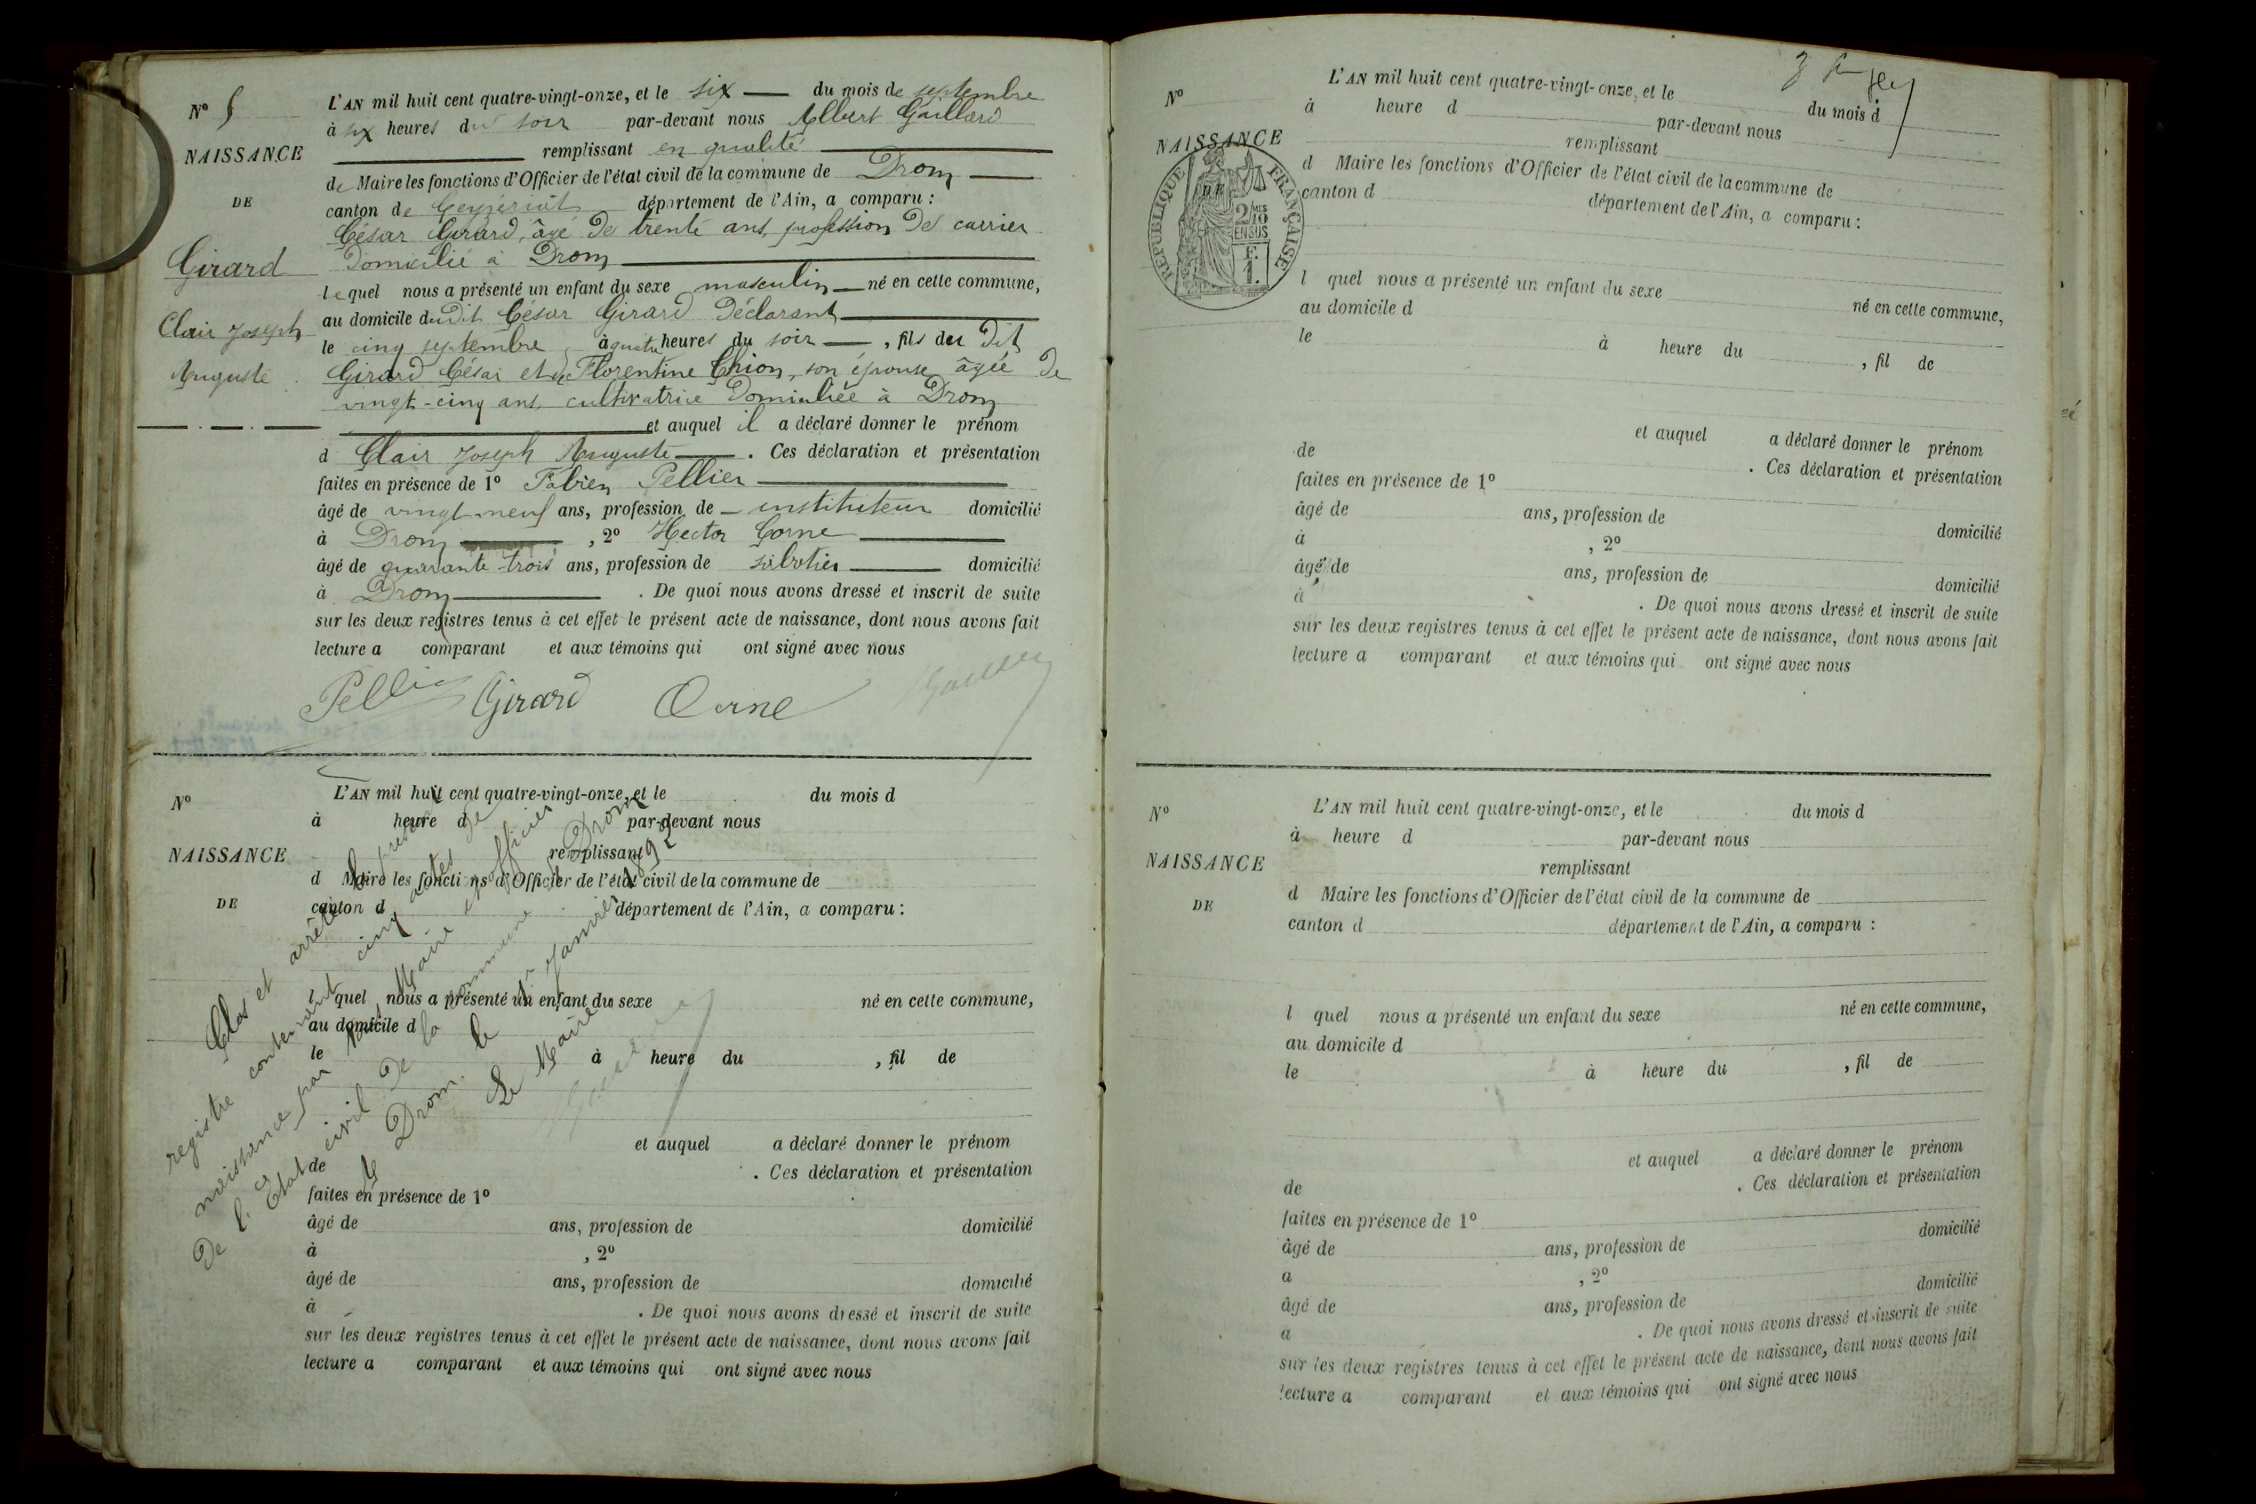 N° 5
NAISSANCE
DE
Girard
Clair Joseph
Auguste
L'AN mil huit cent quatre-vingt-onze, et le six du mois de septembre
à six heures du soir par-devant nous Albert Gaillard
remplissant en qualité
de Maire les fonctions d'Officier de l'état civil de la commune de Drom
canton de Ceyzériat département de l'Ain, a comparu :
César Girard, âgé de trente ans, profession de carrier
domicilié à Drom
lequel nous a présenté un enfant du sexe masculin né en cette commune,
au domicile dudit César Girard déclarant
le cinq septembre, à quatre heures du soir, fils du dit
Girard César et de Florentine Chion, son épouse âgée de
vingt-cinq ans, cultivatrice domiciliée à Drom
et auquel il a déclaré donner le prénom
d Clair Joseph Auguste . Ces déclaration et présentation
faites en présence de 1° Fabien Pellier
âgé de vingt-neuf ans, profession de instituteur domicilié
à Drom , 2° Hector Corne
âgé de quarante-trois ans, profession de sabotier domicilié
à Drom . De quoi nous avons dressé et inscrit de suite
sur les deux registres tenus à cet effet le présent acte de naissance, dont nous avons fait
lecture a comparant et aux témoins qui ont signé avec nous
Pellier Girard Corne Gaillard
N°
NAISSANCE
DE
L'AN mil huit cent quatre-vingt-onze, et le du mois d
à heure d par-devant nous
remplissant
d Maire les fonctions d'Officier de l'état civil de la commune de
canton d département de l'Ain, a comparu :
l quel nous a présenté un enfant du sexe né en cette commune,
au domicile d
le à heure du , fil de
et auquel a déclaré donner le prénom
de . Ces déclaration et présentation
faites en présence de 1°
âgé de ans, profession de domicilié
à , 2°
âgé de ans, profession de domicilié
à . De quoi nous avons dressé et inscrit de suite
sur les deux registres tenus à cet effet le présent acte de naissance, dont nous avons fait
lecture a comparant et aux témoins qui ont signé avec nous
Clos et arrêté le présent
registre contenant cinq actes de
naissance par nous Maire et officier
de l'Etat civil de la commune de Drom
à Drom. le 1er Janvier 1892
Le Maire
N°
NAISSANCE
DE
RÉPUBLIQUE FRANÇAISE
2/10
EN SUS
L'AN mil huit cent quatre-vingt-onze, et le du mois d
à heure d par-devant nous
remplissant
d Maire les fonctions d'Officier de l'état civil de la commune de
canton d département de l'Ain, a comparu :
l quel nous a présenté un enfant du sexe né en cette commune,
au domicile d
le à heure du , fil de
et auquel a déclaré donner le prénom
de . Ces déclaration et présentation
faites en présence de 1°
âgé de ans, profession de domicilié
à , 2°
âgé de ans, profession de domicilié
à . De quoi nous avons dressé et inscrit de suite
sur les deux registres tenus à cet effet le présent acte de naissance, dont nous avons fait
lecture a comparant et aux témoins qui ont signé avec nous
N°
NAISSANCE
DE
L'AN mil huit cent quatre-vingt-onze, et le du mois d
à heure d par-devant nous
remplissant
d Maire les fonctions d'Officier de l'état civil de la commune de
canton d département de l'Ain, a comparu :
l quel nous a présenté un enfant du sexe né en cette commune,
au domicile d
le à heure du , fil de
et auquel a déclaré donner le prénom
de . Ces déclaration et présentation
faites en présence de 1°
âgé de ans, profession de domicilié
à , 2°
âgé de ans, profession de domicilié
à . De quoi nous avons dressé et inscrit de suite
sur les deux registres tenus à cet effet le présent acte de naissance, dont nous avons fait
lecture a comparant et aux témoins qui ont signé avec nous